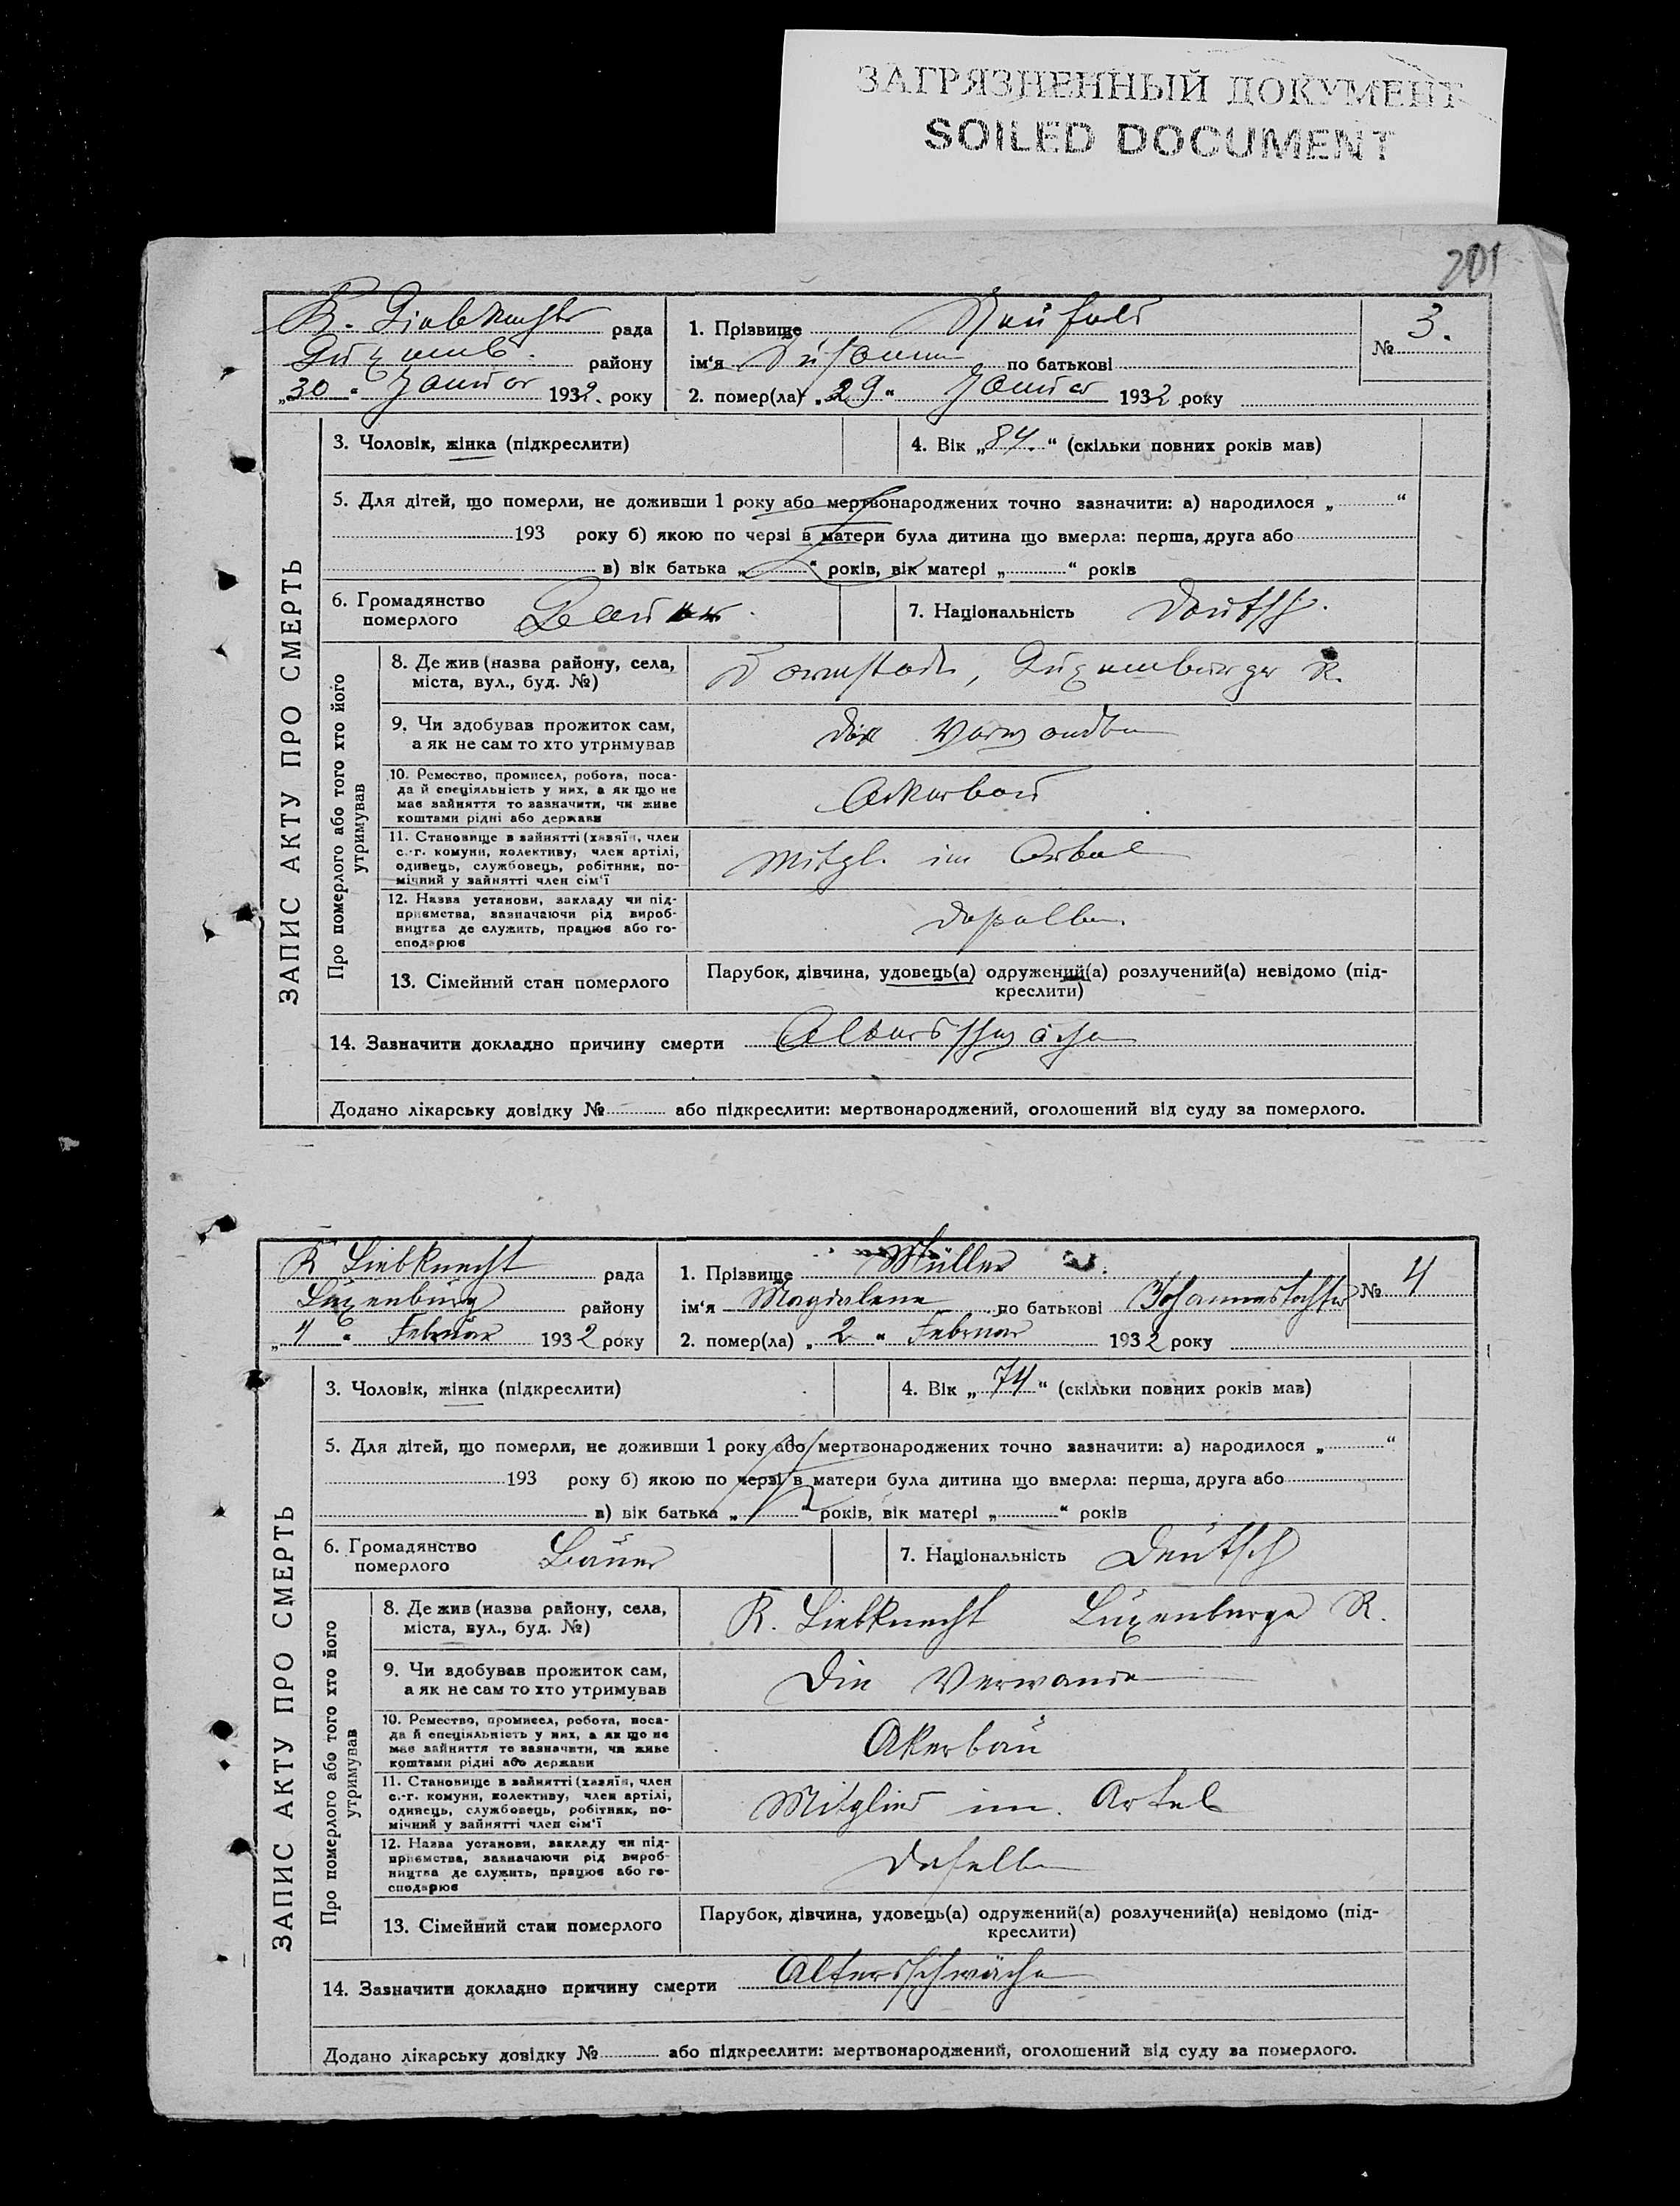 ЗАГРЯЗНЕННЫЙ ДОКУМЕНТ
SOILED DOCUMENT
201
K. Liebknecht рада
Luxemb. району
„30“ Januar 1932. року
1. Прізвище Neufeld
ім'я Susanna по батькові
№ 3.
2. помер(ла) „29“ Januar 1932 року
ЗАПИС АКТУ ПРО СМЕРТЬ
3. Чоловік, жінка (підкреслити)
4. Вік „84.“ (скільки повних років мав)
5. Для дітей, що померли, не доживши 1 року або мертвонароджених точно зазначити: а) народилося „ “
193 року б) якою по черзі в матери була дитина що вмерла: перша, друга або
в) вік батька „ “ років, вік матері „ “ років
6. Громадянство померлого Bauer.
7. Національність Deutsch.
Про померлого або того хто його утримував
8. Де жив (назва району, села,
міста, вул., буд. №)
Darmstadt, Luxemburger R.
9. Чи здобував прожиток сам,
а як не сам то хто утримував
die Verwandten
10. Ремество, промисел, робота, поса-
да й спеціяльність у них, а як що не
має зайняття то зазначити, чи живе
коштами рідні або держави
Ackerbau
11. Становище в зайнятті (хазяїн, член
с.-г. комуни, колективу, член артілі,
одинець, службовець, робітник, по-
мічний у зайнятті член сім'ї
Mitgl. im Artel
12. Назва установи, закладу чи під-
приємства, зазначаючи рід вироб-
ництва де служить, працює або го-
сподарює
daselbst.
13. Сімейний стан померлого
Парубок, дівчина, удовець(а) одружений(а) розлучений(а) невідомо (під-
креслити)
14. Зазначити докладно причину смерти Altersschwäche
Додано лікарську довідку № або підкреслити: мертвонароджений, оголошений від суду за померлого.
K Liebknecht рада
Luxenburg району
„4“ Februar 1932 року
1. Прізвище Müller
ім'я Magdalena по батькові Johannestochter
№ 4
2. помер(ла) „2“ Februar 1932 року
ЗАПИС АКТУ ПРО СМЕРТЬ
3. Чоловік, жінка (підкреслити)
4. Вік „74“ (скільки повних років мав)
5. Для дітей, що померли, не доживши 1 року або мертвонароджених точно зазначити: а) народилося „ “
193 року б) якою по черзі в матери була дитина що вмерла: перша, друга або
в) вік батька „ “ років, вік матері „ “ років
6. Громадянство померлого Bauer
7. Національність Deutsch
Про померлого або того хто його утримував
8. Де жив (назва району, села,
міста, вул., буд. №)
K. Liebknecht Luxenburger R.
9. Чи здобував прожиток сам,
а як не сам то хто утримував
Die Verwande
10. Ремество, промисел, робота, поса-
да й спеціяльність у них, а як що не
має зайняття то зазначити, чи живе
коштами рідні або держави
Akerbau
11. Становище в зайнятті (хазяїн, член
с.-г. комуни, колективу, член артілі,
одинець, службовець, робітник, по-
мічний у зайнятті член сім'ї
Mitglied im. Artel
12. Назва установи, закладу чи під-
приємства, зазначаючи рід вироб-
ництва де служить, працює або го-
сподарює
daselbst
13. Сімейний стан померлого
Парубок, дівчина, удовець(а) одружений(а) розлучений(а) невідомо (під-
креслити)
14. Зазначити докладно причину смерти Altersschwäche
Додано лікарську довідку № або підкреслити: мертвонароджений, оголошений від суду за померлого.